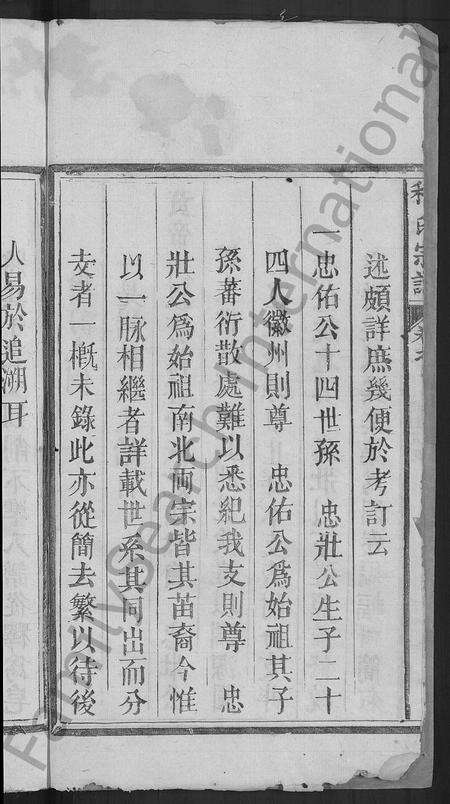 述頗詳庶幾便於考訂云
一忠佑公十四世孫 忠壯公生子二十
四人徽州則尊 忠佑公爲始祖其子
孫蕃衍散處難以悉紀我支則尊 忠
壯公爲始祖南北両宗皆其苗裔今惟
以一脉相繼者詳載世系其同出而分
支者一槪未錄此亦從簡去繁以待後
人易於追溯耳
氏宗譜
FamilySearch International